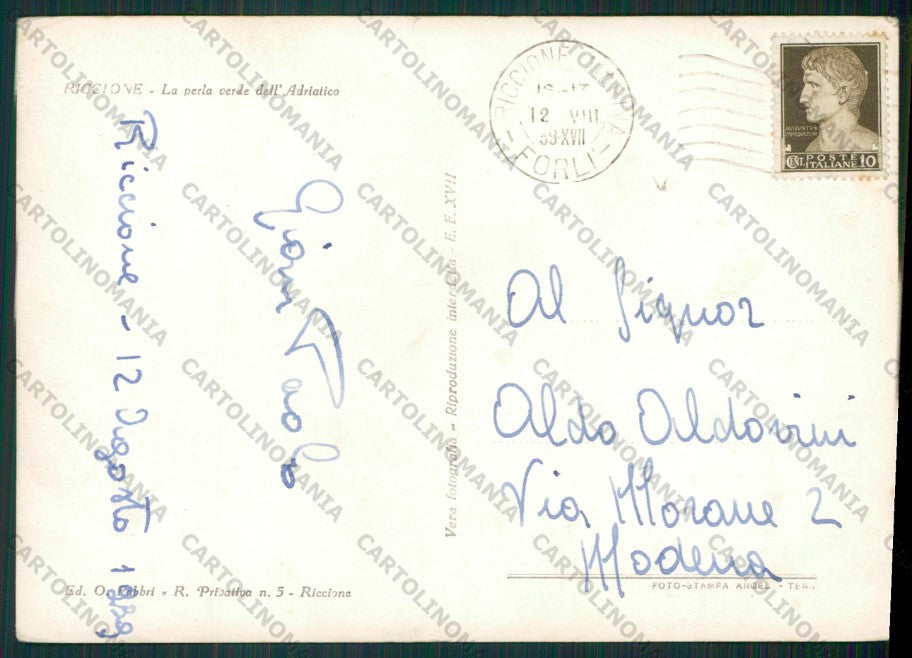 RICCIONE - La perla verde dell'Adriatico
Riccione - 12 Agosto 1939
Gian Paolo
Vera fotografia - Riproduzione interdetta - E. E. XVII
Ed. O. Fabbri - R. Privativa n. 5 - Riccione
RICCIONE
16-17
12 VIII
39-XVII
FORLI'
AUGUSTVS
IMPERATOR
CENT. POSTE ITALIANE 10
Al Signor
Aldo Aldovini
Via Morane 2
Modena
FOTO-STAMPA ANGEL - TERNI
CARTOLINOMANIA